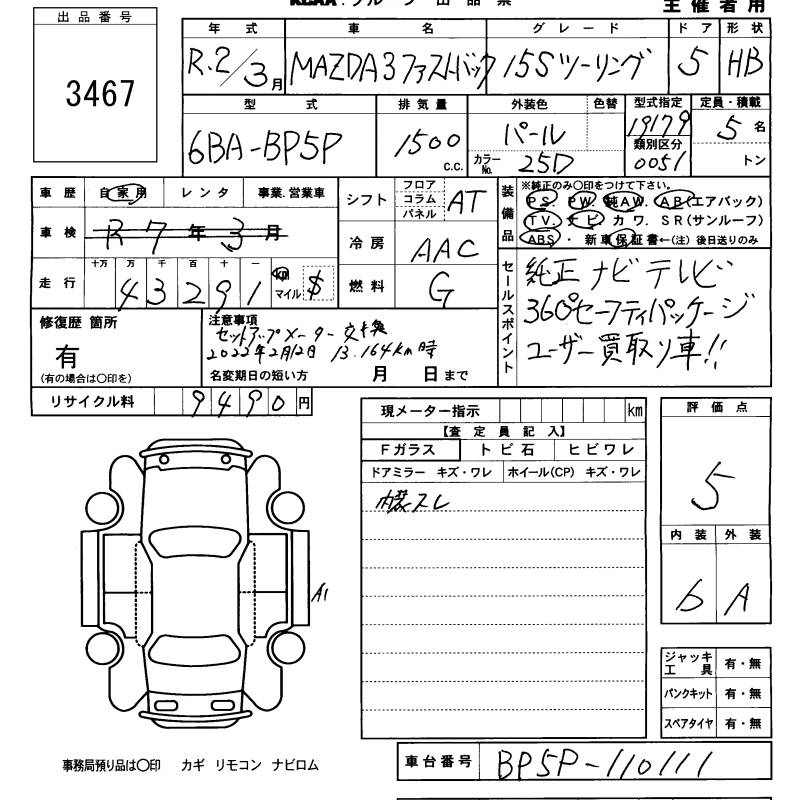 KCAA グループ 出品票
主催者用
出品番号
3467
年式 車名 グレード ドア 形状
R.2/3月 MAZDA3ファストバック 15Sツーリング 5 HB
型式 排気量 外装色 色替 型式指定 定員・積載
6BA-BP5P 1500 C.C. パール 19179 5名
カラーNo. 25D 類別区分 0051 トン
車歴 自家用 レンタ 事業.営業車
車検 R 7年 3月
走行 十万 万 千 百 十 一
43291 km マイル $
シフト フロア コラム パネル AT
冷房 AAC
燃料 G
装備品 ※純正のみ〇印をつけて下さい。
PS. PW. 純AW. AB(エアバック)
TV. ナビ カワ. SR(サンルーフ)
ABS・新車保証書←(注)後日送りのみ
セールスポイント
純正ナビテレビ
360°セーフティパッケージ
ユーザー買取り車!!
修復歴 箇所
有
(有の場合は〇印を)
注意事項
セットアップメーター交換
2022年2月12日 13.164km時
名変期日の短い方 月 日まで
リサイクル料 9490円
現メーター指示 km
【査定員記入】
Fガラス トビ石 ヒビワレ
ドアミラー キズ・ワレ ホイール(CP) キズ・ワレ
内装スレ
評価点
5
内装 外装
b A
A1
ジャッキ工具 有・無
パンクキット 有・無
スペアタイヤ 有・無
事務局預り品は〇印 カギ リモコン ナビロム
車台番号 BP5P-110111